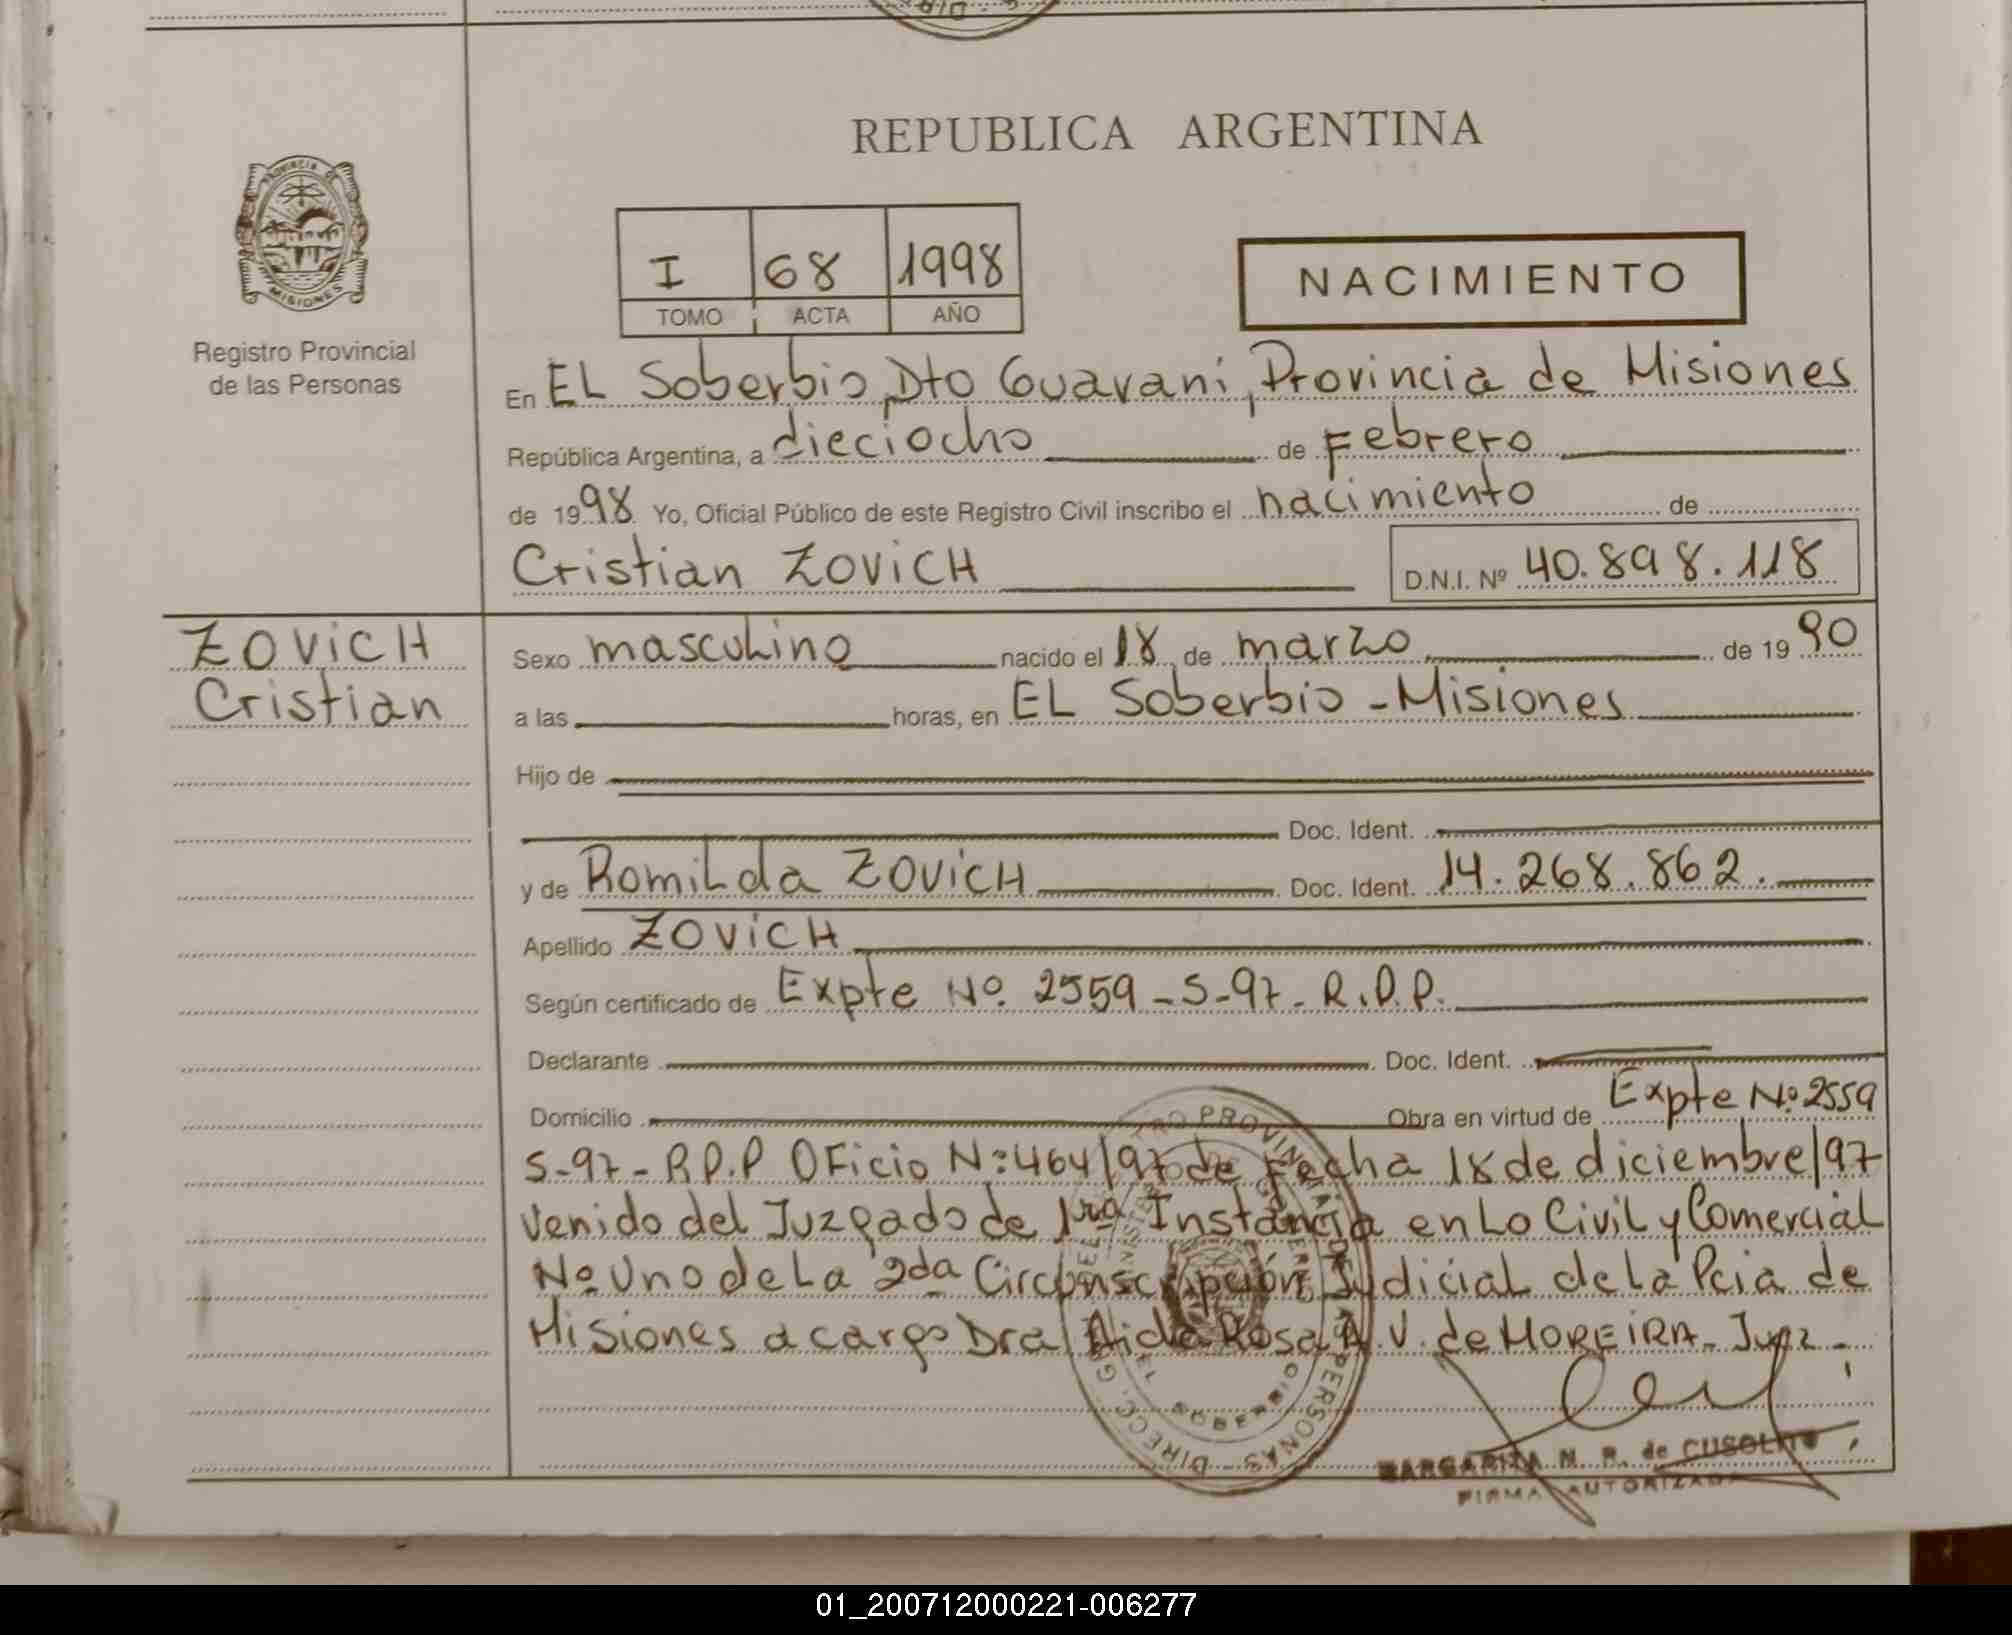 REPUBLICA ARGENTINA
PROVINCIA DE
MISIONES
Registro Provincial
de las Personas
I 68 1998
TOMO ACTA AÑO
NACIMIENTO
En EL Soberbio, Dto Guarani, Provincia de Misiones
República Argentina, a dieciocho de Febrero
de 1998 Yo, Oficial Público de este Registro Civil inscribo el nacimiento de
Cristian ZOVICH D.N.I. Nº 40.898.118
ZOVICH
Cristian
Sexo masculino nacido el 18 de marzo de 1990
a las horas, en EL Soberbio - Misiones
Hijo de
Doc. Ident.
y de Romilda ZOVICH Doc. Ident. 14.268.862.
Apellido ZOVICH
Según certificado de Expte Nº 2559-S-97-R.P.P.
Declarante Doc. Ident.
Domicilio Obra en virtud de Expte Nº 2559
S-97-R.P.P OFicio Nº 464/97 de Fecha 18 de diciembre/97
Venido del Juzgado de 1ra Instancia en Lo Civil y Comercial
Nº Uno de La 2da Circunscripción Judicial de La Pcia de
Misiones a cargo Dra Aida Rosa A.V. de MOREIRA - Juez -
EL SOBERBIO
MARGARITA N. R. de CUSOLITO
FIRMA AUTORIZADA
01_200712000221-006277